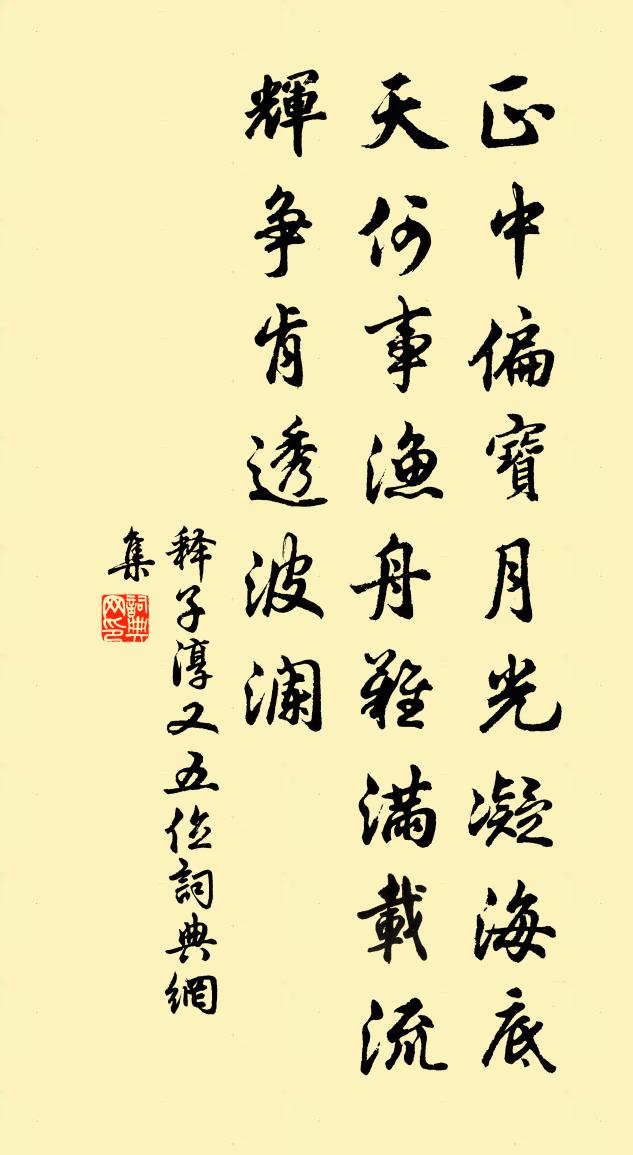 正中偏寶月光凝海底
天何事漁舟難滿載流
輝争肯透波澜
释子淳又五位詞典網
集
詞典網印